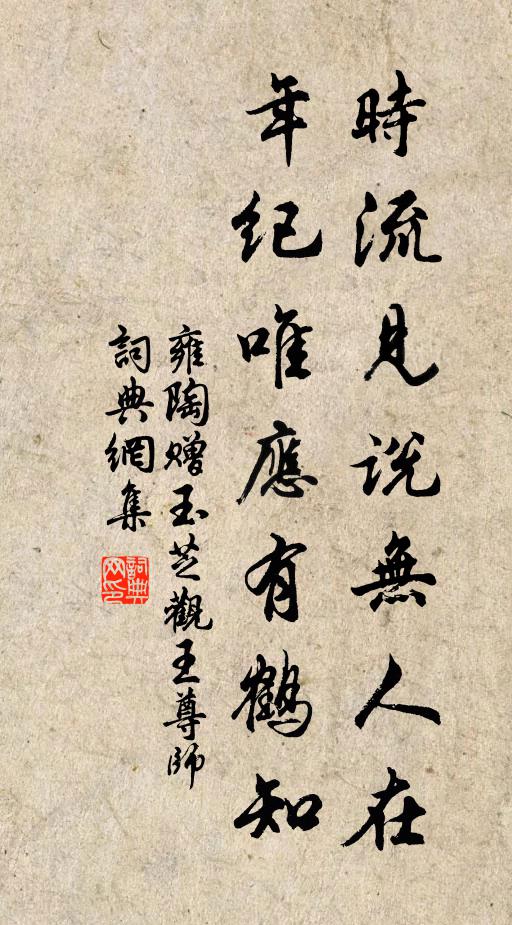 時流見説無人在
年紀唯應有鶴知
雍陶赠玉芝觀王尊師
詞典網集
詞典网印